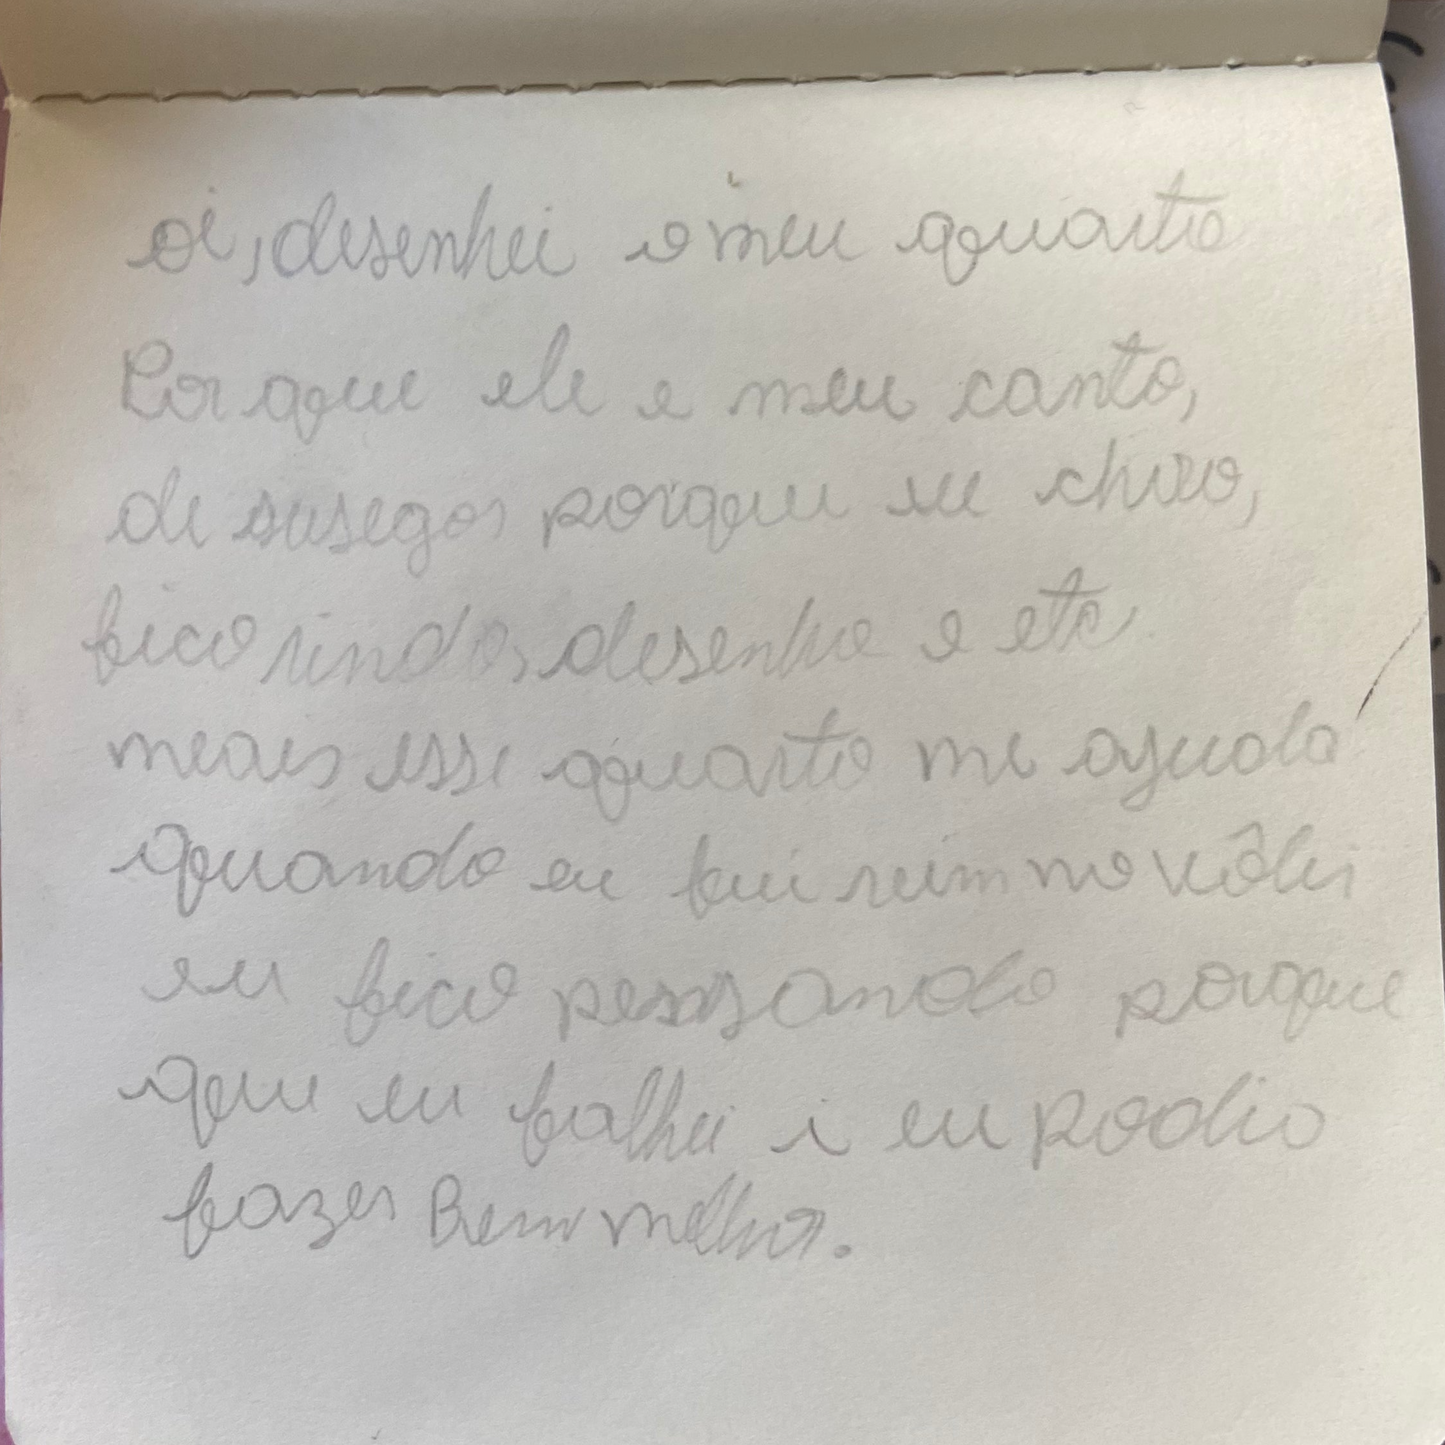 oi, desenhei o meu quarto
Porque ele e meu canto,
de susego, porque eu choro,
fico rindo, desenho e etc
meais esse quarto me ajuda
quando eu fui ruim no vôlei
eu fico pensando porque
que eu falhei i eu podia
fazer Bem melhor.